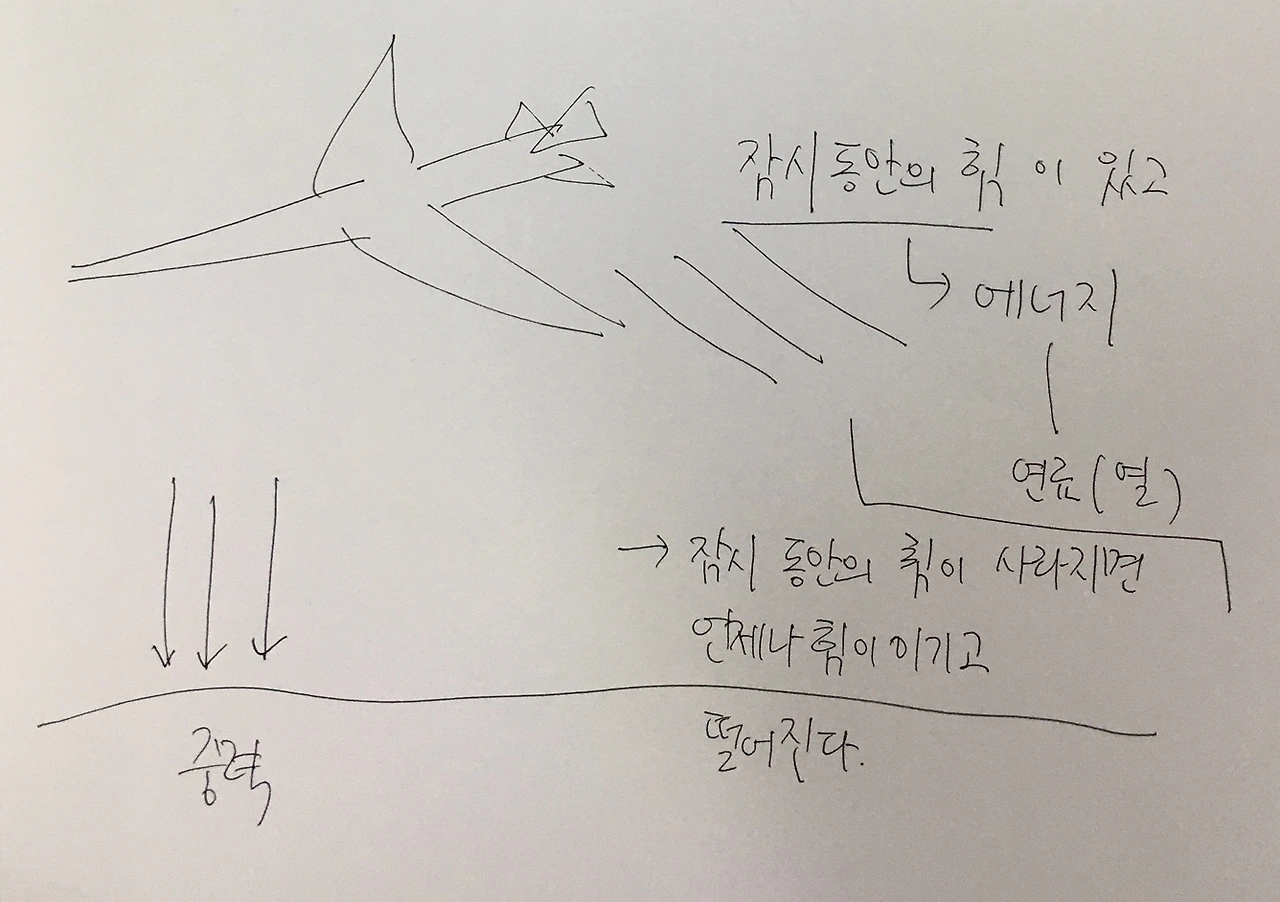 잠시동안의 힘이 있고
↳ 에너지
연료(열)
→ 잠시 동안의 힘이 사라지면
언제나 힘이 이기고
떨어진다.
중력